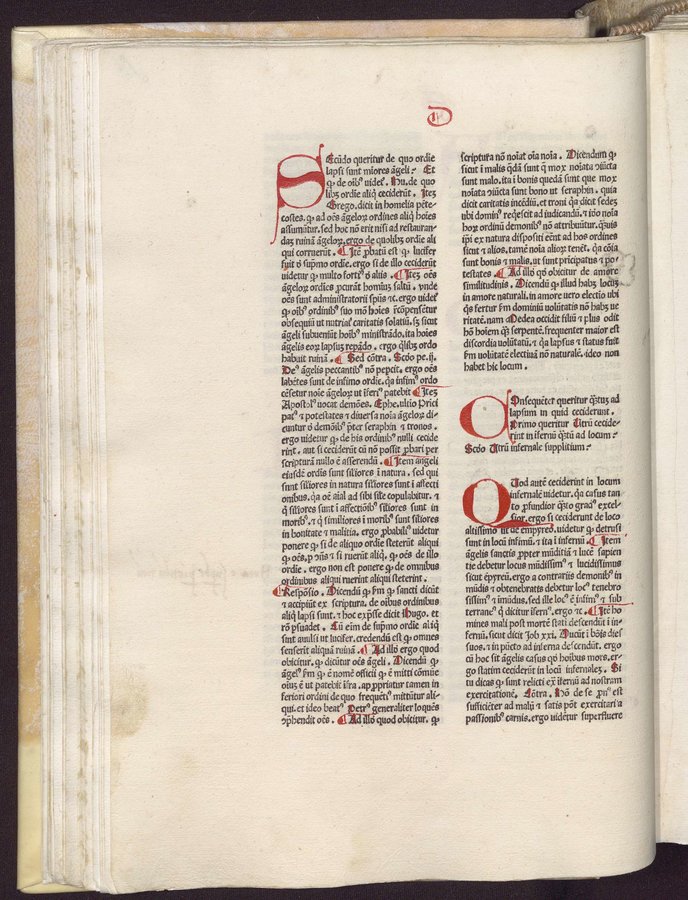 D
SEcūdo queritur de quo ordīe
lapsi sunt mīores āgeli? Et
ꝙ de oībꝰ videt᷑. Nu. de quo
libꝫ ordīe aliq̄ ceciderūt. Itē
Grego. dicit in homelia pēte-
costes. ꝙ ad oēs āgeloꝝ ordines aliq̄ hoīes
assumūtur. sed hoc nō erit nisi ad restauran-
daꝫ ruinā āgeloꝝ. ergo de quolibꝫ ordīe ali
qui corruerūt. Itē ꝓbatū est ꝙ lucifer
fuit ď supmo ordīe. ergo si de illo ceciderūt
videtur ꝙ multo fortiꝰ ď aliis. Itē oēs
āgeloꝝ ordīes ꝓcurāt hominuꝫ salutē. vnde
oēs sunt administratorii spūs ⁊c. ergo videt᷑
ꝙ oībꝰ ordinibꝰ suo mō hoīes
obsequiū
āgeli subueniūt hoībꝰ ministrādo. ita hoīes
āgelis eoꝝ lapsuꝫ repādo. ergo q̄libꝫ ordo
habuit ruinā. Sed cōtra. Scd̄o pe. ij.
Deꝰ āgelis peccantibꝰ nō pepcit. ergo oēs
labētes sunt de infimo ordīe. q̄a infimꝰ ordo
cēsetur noīe āgeloꝝ ut īferiꝰ patebit. Itē
Apostolꝰ vocat demōes. Ephe. ultīo Prīci
patꝰ ⁊ potestates ⁊ diuersa noīa āgeloꝝ dī-
cuntur ď demōibꝰ p̄ter seraphin ⁊ tronos.
ergo videtur ꝙ de his ordinibꝰ nulli cecide
rint. aut si ceciderūt cū nō possit ꝓbari per
scripturā nullo ē asserendū. Item āngeli
eiusdē ordīs sunt sīliores ī natura. sed qui
sunt sīliores in natura sunt sīliores ī affecti
onibus. q̄a oē aīal ad sibi sīle copulabitur. ⁊
q̄ sīliores sunt ī affectionibꝰ sīliores sunt in
moribꝰ. ⁊ q̄ similiores ī moribꝰ sunt sīliores
in bonitate ⁊ malitia. ergo ꝓbabiliꝰ videtur
ponere ꝙ si de aliquo ordīe steterūt aliqui
ꝙ oēs. ⁊ si ruerūt aliq̄. ꝙ oēs de illo
ordīe. ergo non est ponere ꝙ de omnibus
ordinibus aliqui ruerint aliqui steterint.
Respōsio. Dicendū ꝙ ẜm ꝙ sancti dicūt
⁊ accipiūt ex scriptura. de oībus ordinibus
aliq̄ lapsi sunt. ⁊ hoc exp̄sse dicit Hugo. et
rō ꝑsuadet. Cū eīm de supmo ordīe aliq̄
sint auulsi ut lucifer. credendū est ꝙ omnes
senserīt aliquā ruinā. Ad illō ergo quod
obicitur. ꝙ dicūtur oēs āgeli. Dicendū ꝙ
āgelꝰ ẜm ꝙ ē nomē officii ꝙ ē mitti cōmūe
oīuꝫ ē ut patebit īfra. apꝓpriatur tamen in
feriori ordini de quo frequētiꝰ mittūtur ali-
qui. et ideo beatꝰ Petrꝰ generaliter loquēs
cōp̄hendit oēs. Ad illō quod obicitur. ꝙ
scriptura nō noīat oīa noīa. Dicendum ꝙ
sicut ī malis q̄dā sunt q̄ mox noīata
sunt malo. ita ī bonis quedā sunt que mox
noīata sunt bono ut seraphin. quia
dicit caritatis incēdiū. et troni q̄a dicit sedes
ubi dominꝰ req̄escit ad iudicandū. ⁊ iō noīa
hoꝝ ordinū demonibꝰ nō attribuūtur. q̄uis
ipī ex natura dispositi eēnt ad hos ordines
sicut ⁊ alios. tamē noīa aliorꝫ tenēt. q̄a cōīa
sunt bonis ⁊ malis. ut sunt pricipatus ⁊ po
testates. Ad illō qď obicitur de amore
similitudinis. Dicendū ꝙ illud habꝫ locuꝫ
in amore naturali. in amore uero electio ubi
q̄s fertur ẜm dominiū uolūtatis nō habꝫ ue
ritatē. nam Medea occidit filiū ⁊ plus odit
hō hoīem q̄ꝫ serpentē. frequenter maior est
discordia uolūtatū. ⁊ q̄a lapsus ⁊ status fuit
ẜm uolūtatē electiuā nō naturalē. ideo non
habet hic locum.
COnsequēter queritur q̄ꝫtuꝫ ad
lapsum in quid ceciderunt.
Primo queritur Utrū cecide-
rīnt in īfernū q̄ꝫtū ad locum?
Scd̄o Utrū infernale supplitium?
QUod autē ceciderint in locum
infernalē uidetur. q̄a casus tan
to ꝓfundior q̄ꝫto gradꝰ excel-
sior. ergo si ceciderunt de loco
altissimo ut de empyreo. uidetur ꝙ detrusi
sunt in locū infimū. ⁊ ita ī infernū. Item
āgelis sanctis ꝓpter mūditiā ⁊ lucē sapien
tie debetur locus mūdissimꝰ ⁊ lucidissimus
sicut epyreū. ergo a contrariis demonibꝰ in
mūdis ⁊ obtenebratis debetur locꝰ tenebro
sissimꝰ ⁊ īmūdus. sed ille locꝰ ē īnfimꝰ ⁊ sub
terraneꝰ q̄ dicitur īfernꝰ. ergo ⁊c. Itē ho
mines mali post mortē stati descendūt ī in-
fernū. sicut dicit Job xxi. Ducūt ī bōis dies
suos. ⁊ in pūcto ad inferna descēndūt. ergo
cū hoc sit āgelis casus qď hoībus mors. er-
go statim ceciderūt in locū infernalē. Si
tu dicas ꝙ sunt relicti ex īfernū ad nostram
exercitationē. Cōntra. Nō est
sufficiēter ad malū ⁊ satis pōt exercitari a
passionibꝰ carnis. ergo uidētur superfluere